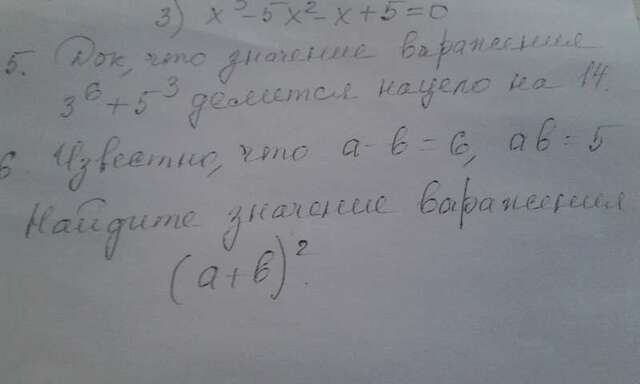 3) x³-5x²-x+5=0
5. Док, что значение выражения
3⁶+5³ делится нацело на 14.
6. Известно, что a-b=6, ab=5
Найдите значение выражения
(a+b)².